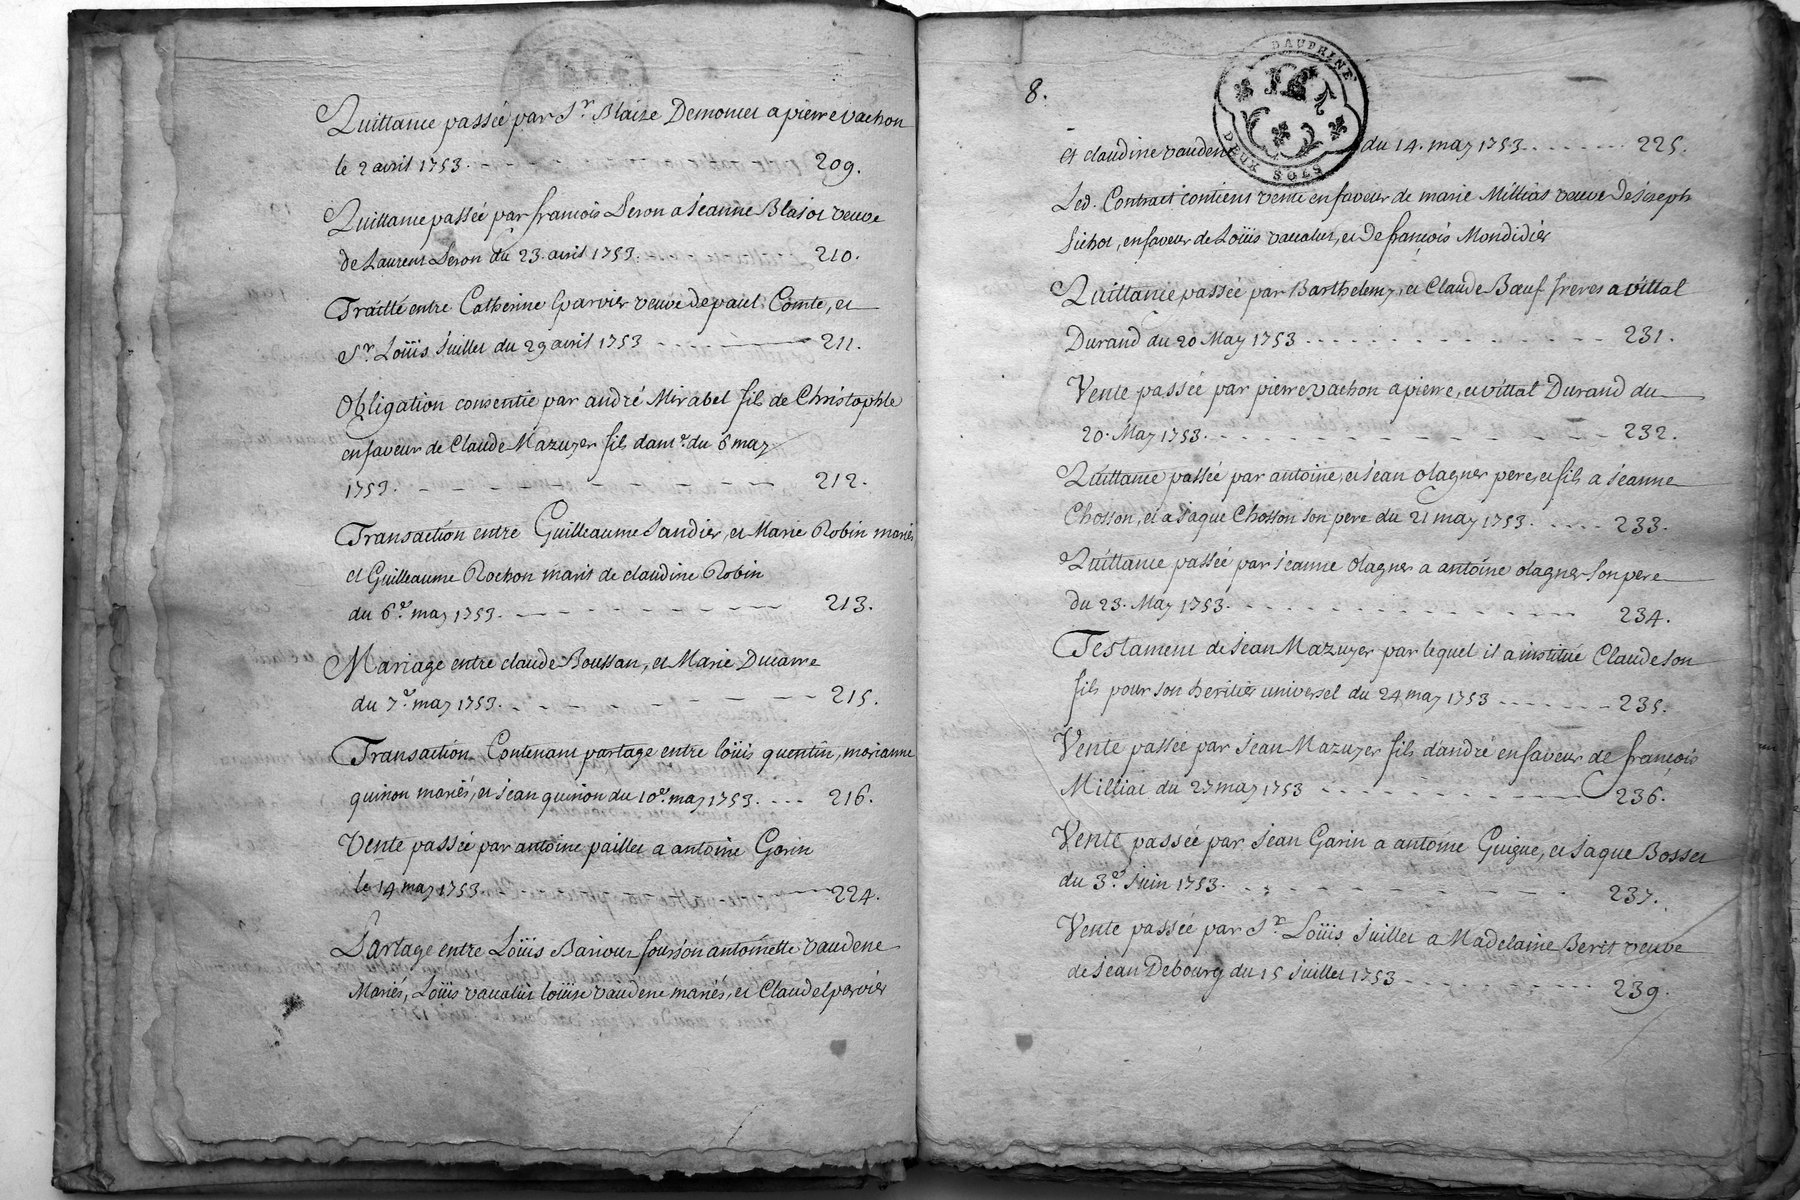 Quittance passée par Sr. Blaize Demonet a pierre vachon
le 2 avril 1753. 209.
Quittance passée par francois Seron a Jeanne Blajot veuve
de Laurent Seron du 23. avril 1753. 210.
Traitté entre Catherine Eparvier veuve de paul Comte, et
Sr. Loüis Juillet du 29 avril 1753 211.
Obligation consentie par andré Mirabel fils de Christophle
en faveur de Claude Mazuyer fils d'am. du 6 may
1753. 212.
Transaction entre Guilleaume Sandier, et Marie Robin mariés
et Guilleaume Rochon maris de claudine Robin
du 6e. may 1753. 213.
Mariage entre claude Boussan, et Marie Ducarre
du 7e. may 1753. 215.
Transaction Contenant partage entre loüis quentin, marianne
quinon mariés, et jean quinon du 10e. may 1753. 216.
Vente passée par antoine paillet a antoine Garin
le 14 may 1753. 224.
Partage entre Loüis antoinette vaudene
Mariés, Loüis loüise vaudene mariés, et Claude Eparvier
8.
DAUPHINÉ
DEUX SOLS
et claudine vaudene du 14. may 1753. 225.
Led. Contract contient vente en faveur de marie Milliat veuve de Joseph
Sichot, en faveur de Loüis, et de françois Mondidier
Quittance passée par Barthelemy, et Claude Bœuf freres a vittal
Durand du 20 May 1753 231.
Vente passée par pierre vachon a pierre, et vittal Durand du
20. May 1753. 232.
Quittance passée par antoine, et jean olagner pere, et fils a jeanne
Chosson, et a jaque Chosson son pere du 21 may 1753. 233.
Quittance passée par jeanne olagner a antoine olagner son pere
du 23. May 1753. 234.
Testament de jean Mazuyer par lequel il a institué Claude son
fils pour son heritier universel du 24 may 1753 235.
Vente passée par jean Mazuyer fils d'andré en faveur de françois
Milliat du 27 may 1753 236.
Vente passée par jean Garin a antoine Guigue, et jaque Bosset
du 3e. juin 1753. 237.
Vente passée par Sr. Loüis Juillet a Madelaine Berit veuve
de jean Debourg du 15 juillet 1753 239.